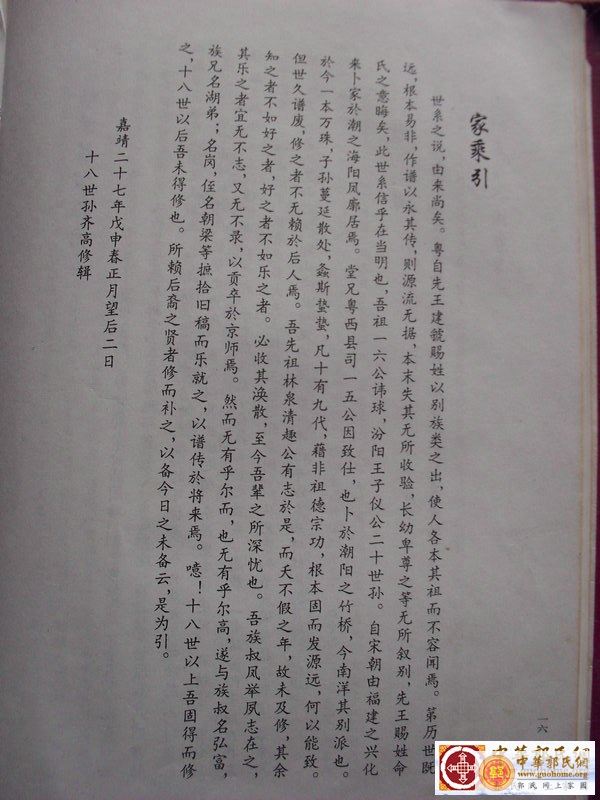 家乘引
世系之说，由来尚矣。粤自先王建虢赐姓以别族类之出，使人各本其祖而不容闻焉。第历世既
远，根本易非，作谱以永其传，则源流无据，本末失其无所收验，长幼卑尊之等无所叙别，先王赐姓命
氏之意晦矣，此世系信乎在当明也，吾祖一六公讳球，汾阳王子仪公二十世孙。自宋朝由福建之兴化
来卜家於潮之海阳凤廓居焉。堂兄粤西县司一五公因致仕，也卜於潮阳之竹桥，今南洋其别派也。
於今一本万珠，子孙蔓延散处，螽斯蛰蛰，凡十有九代，藉非祖德宗功，根本固而发源远，何以能致。
但世久谱废，修之者不无赖於后人焉。吾先祖林泉清趣公有志於是，而天不假之年，故未及修，其余
知之者不如好之者，好之者不如乐之者。必收其涣散，至今吾辈之所深忧也。吾族叔凤举夙志在之，
其乐之者宜无不志，又无不录，以贡卒於京师焉。然而无有乎尔而，也无有乎尔高，遂与族叔名弘富，
族兄名湖弟；名岗，侄名朝梁等摭拾旧稿而乐就之，以谱传於将来焉。噫！十八世以上吾固得而修
之，十八世以后吾未得修也。所赖后裔之贤者修而补之，以备今日之未备云，是为引。
嘉靖二十七年戊申春正月望后二日
十八世孙齐高修辑
一六
中华郭氏网
中華郭氏網
www.guohome.org
郭氏网上家园